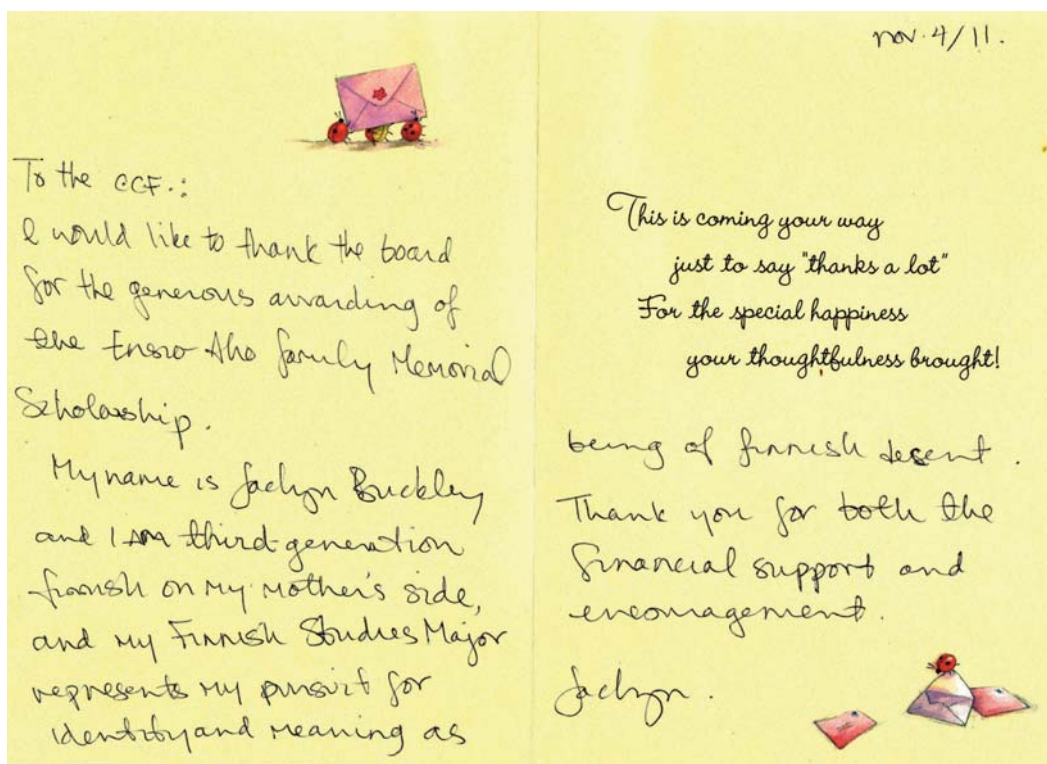 To the CCF.:
I would like to thank the board
for the generous awarding of
the Ensio Aho family Memorial
Scholarship.
My name is Jaclyn Buckley
and I am third-generation
finnish on my mother's side,
and my Finnish Studies Major
represents my pursuit for
identity and meaning as
nov. 4/11.
This is coming your way
just to say "thanks a lot"
For the special happiness
your thoughtfulness brought!
being of finnish desent.
Thank you for both the
financial support and
encouragement.
Jaclyn.